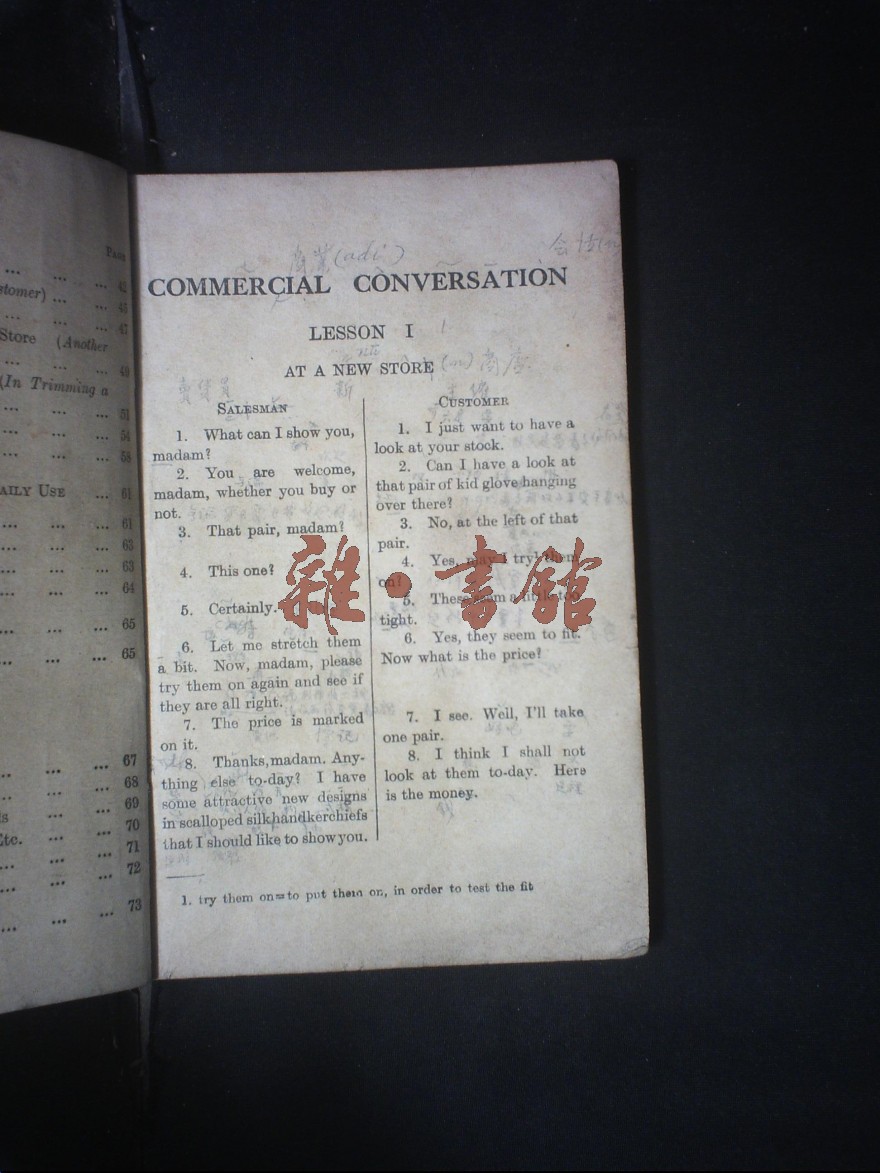 PAGE
... ... ... 42
stomer) ... ... 45
... ... ... 47
Store (Another
... ... ... 49
(In Trimming a
... ... ... 51
... ... ... 54
... ... ... 58
AILY USE ... 61
... ... ... 61
... ... ... 63
... ... ... 63
... ... ... 64
... ... ... 65
... ... ... 65
... ... ... 67
... ... ... 68
... ... ... 69
Etc. ... ... 70
... ... ... 71
... ... ... 72
... ... ... 73
商業(adj)
COMMERCIAL CONVERSATION
LESSON I
AT A NEW STORE
賣貨員 新
SALESMAN
1. What can I show you,
madam?
2. You are welcome,
madam, whether you buy or
not.
3. That pair, madam?
4. This one?
5. Certainly.
6. Let me stretch them
a bit. Now, madam, please
try them on again and see if
they are all right.
7. The price is marked
on it.
8. Thanks, madam. Any-
thing else to-day? I have
some attractive new designs
in scalloped silk handkerchiefs
that I should like to show you.
CUSTOMER
1. I just want to have a
look at your stock.
2. Can I have a look at
that pair of kid glove hanging
over there?
3. No, at the left of that
pair.
4. Yes, may I try¹ them
on?
5. These seem a little too
tight.
6. Yes, they seem to fit.
Now what is the price?
7. I see. Well, I'll take
one pair.
8. I think I shall not
look at them to-day. Here
is the money.
1. try them on=to put them on, in order to test the fit
雜·書館